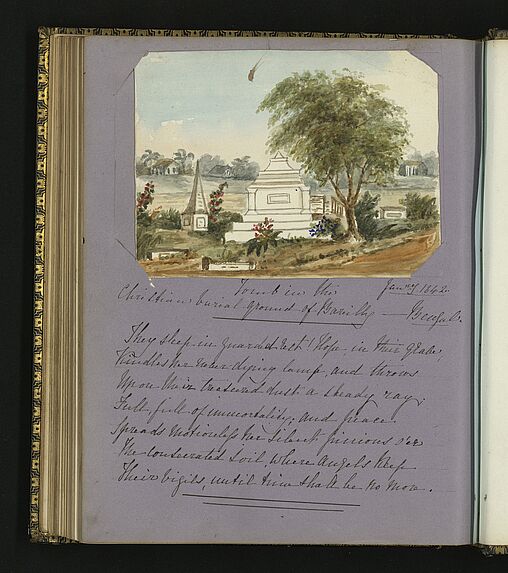 Tomb in the Jany 1842.
Christian burial ground of Bareilly — Bengal.
They sleep in guarded rest! Hope in their
Kindles her never dying lamp, and throws
Upon their treasured dust a steady ray;
Full, full of immortality; and peace
Spreads motionless her silent pinions o'er
The consecrated soil, where Angels keep
Their vigils, until time shall be no more.